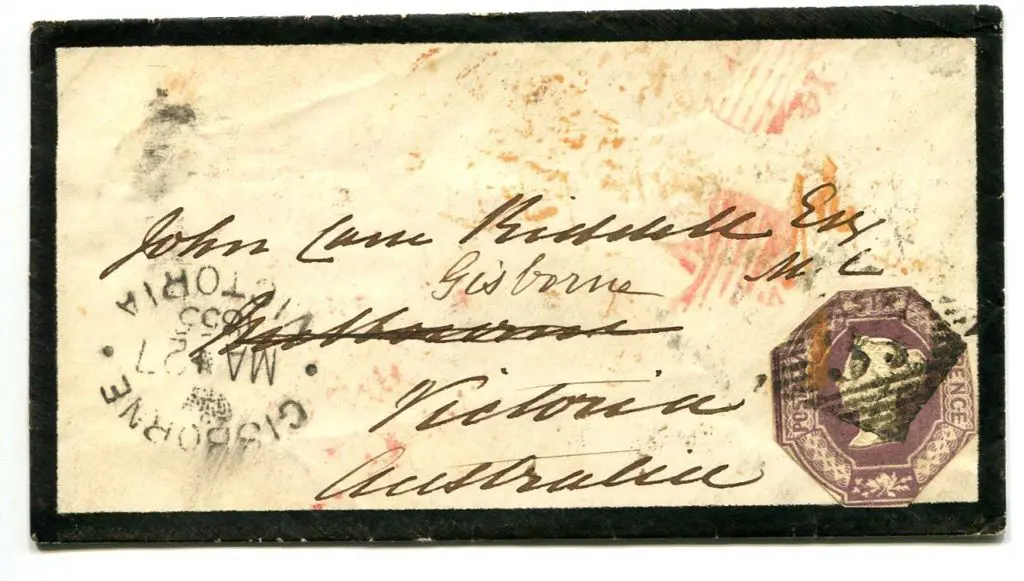 John Carre Riddell Esq
M. C
Gisborne
Melbourne
Victoria
Australia
GISBORNE
MA 27
VICTORIA